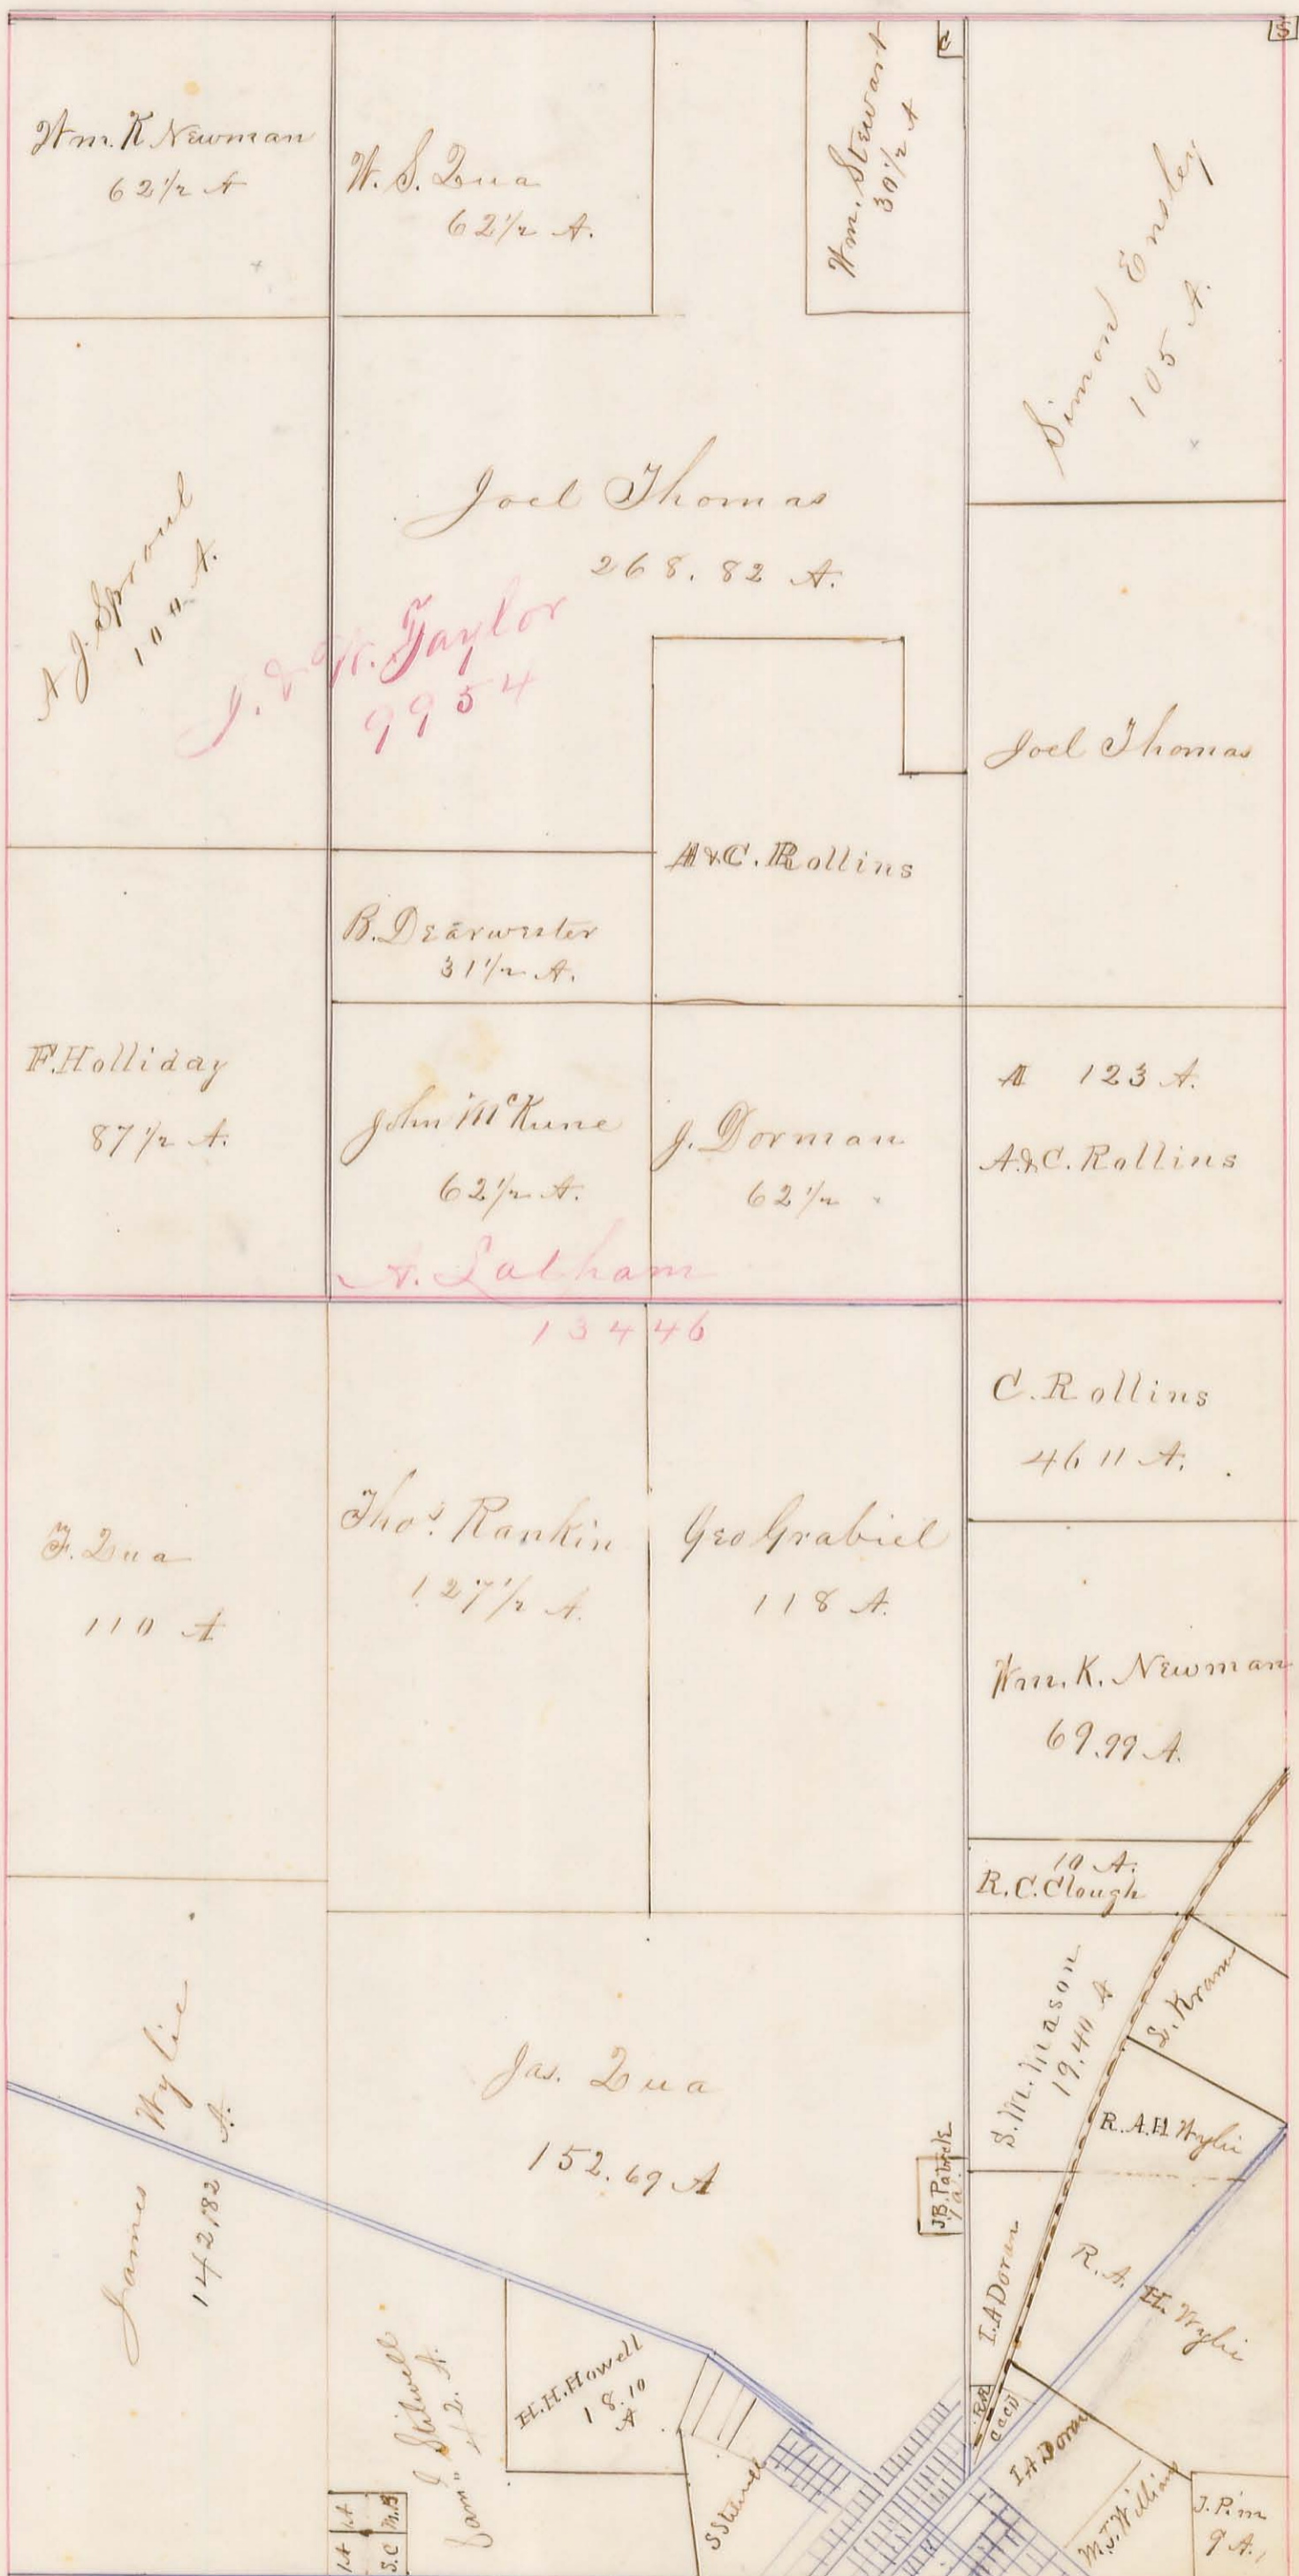 C
S
Wm. K Newman
62 1/2 A
W. S. Dua
62 1/2 A.
Wm. Stewart
30 1/2 A
Simon Ensley
105 A.
Joel Thomas
268.82 A.
A J. Sproul
100 A.
J. & W. Taylor
9954
Joel Thomas
A & C. Rollins
B. Dearwester
31 1/2 A.
F. Holliday
87 1/2 A.
John McKune
62 1/2 A.
J. Dorman
62 1/2 "
123 A.
A. & C. Rollins
A. Latham
13446
C. Rollins
46 11 A.
F. Dua
110 A
Thos. Rankin
127 1/2 A.
Geo Grabiel
118 A.
Wm. K. Newman
69.99 A.
10 A.
R. C. Clough
James Wylie
142,182 A.
Jas. Dua
152.69 A
S. M. Mason
19.40 A
L. Kram
R. A. H Wylie
J.B. Patrick
I. A Doran
R. A. H. Wylie
H. H. Howell
18.10
A
J Stilwell
42. A.
R.H
I A Doran
M. J. William
J. Pim
9 A.
1A
1A
1A
S.C
M.B